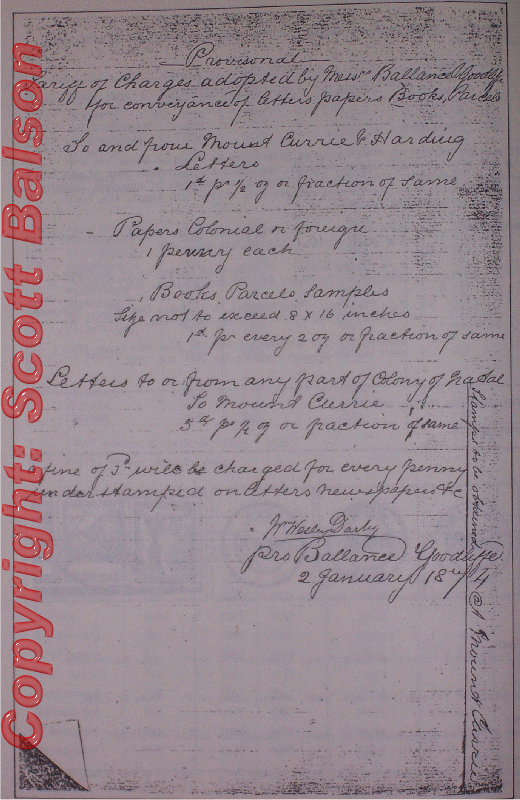 Provisional
Tariff of Charges adopted by Messrs Ballance & Goodliffe
for conveyance of letters papers Books, Parcels
To and from Mount Currie & Harding
Letters
1d pr ½ oz or fraction of same
Papers Colonial or foreign
1 penny each
Books, Parcels, Samples
Size not to exceed 8 x 16 inches
1d pr every 2 oz or fraction of same
Letters to or from any part of Colony of Natal
To Mount Currie
5d pr ½ oz or fraction of same
fine of will be charged for every penny
understamped on letters newspapers &c
Wm Wesley Darby
pro Ballance Goodliffe
2 January 1874
Stamps to be obtained @ Mount Currie
Copyright: Scott Balson